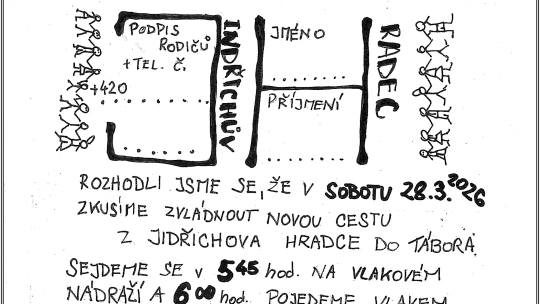 PODPIS
RODIČŮ
+TEL. Č.
+420
JINDŘICHŮV
JMÉNO
PŘÍJMENÍ
HRADEC
ROZHODLI JSME SE, ŽE V SOBOTU 28.3.2026
ZKUSÍME ZVLÁDNOUT NOVOU CESTU
Z JIDŘICHOVA HRADCE DO TÁBORA.
SEJDEME SE V 5 45 hod. NA VLAKOVÉM
NÁDRAŽÍ A 6 00 hod. POJEDEME VLAKEM